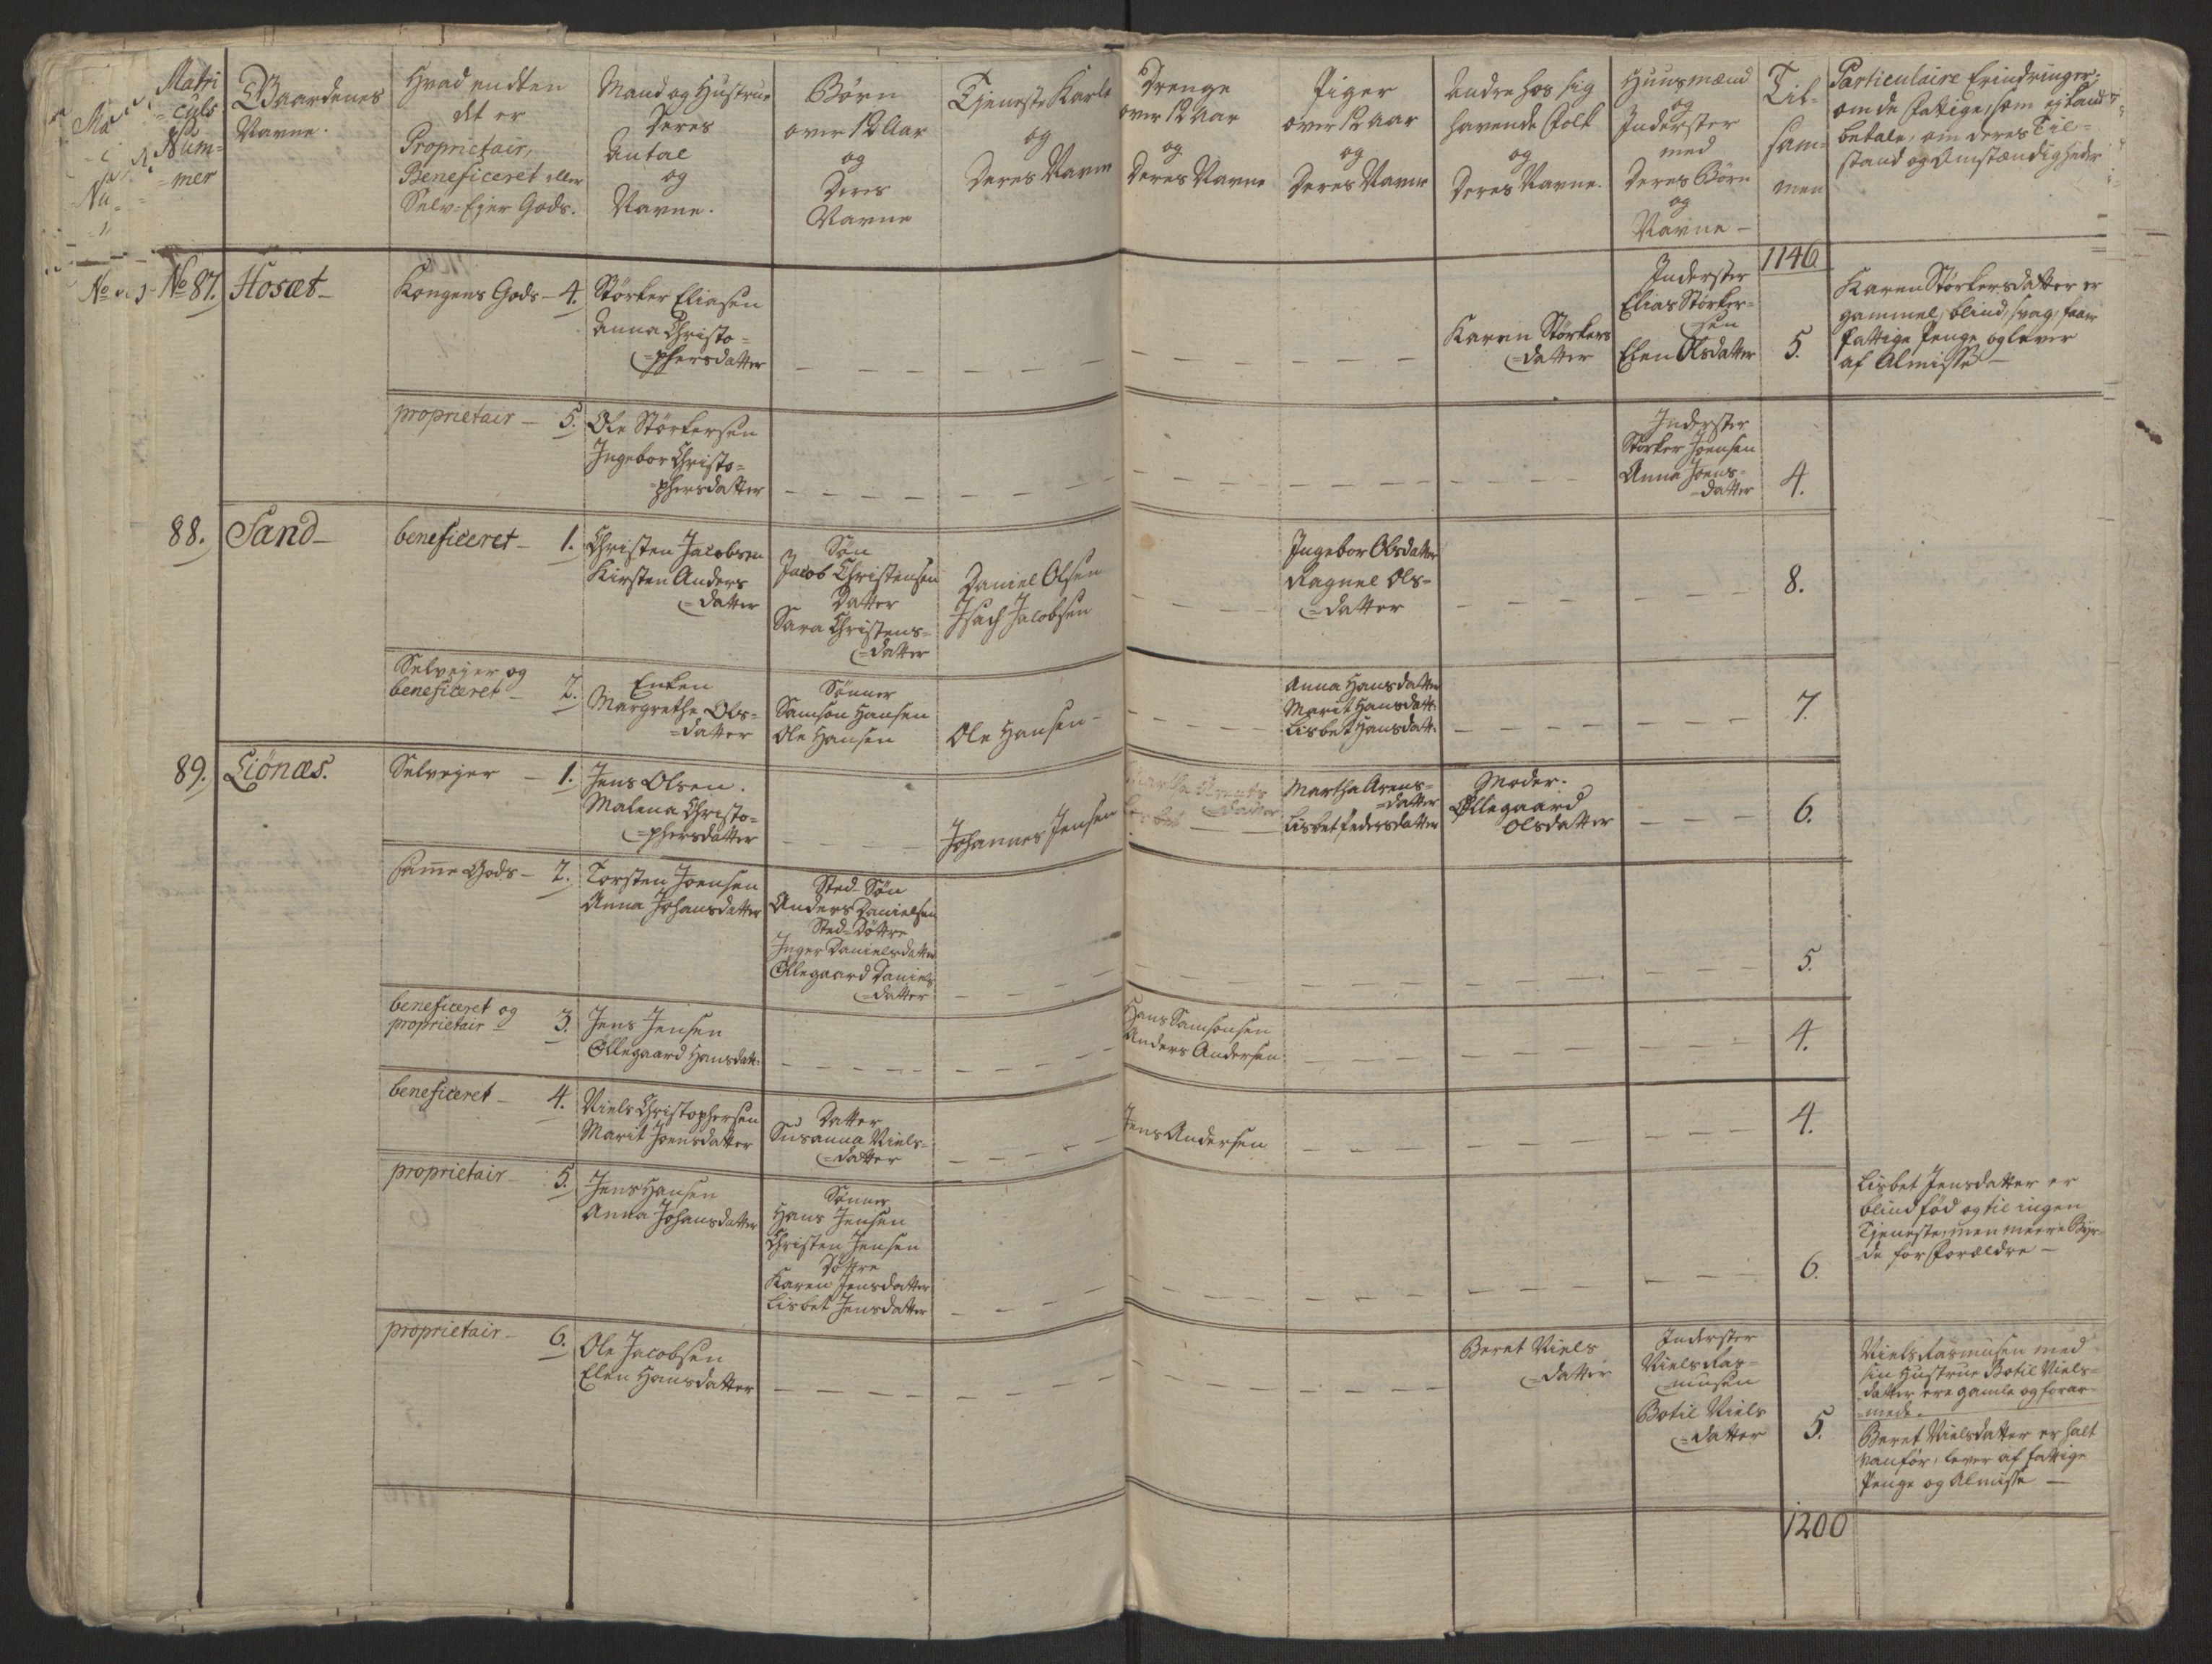 Matri
=culs
Num=
=mer
Gaardenes
Navne.
Hvad endten
det er
Proprietair,
Beneficeret eller
Selv=Ejer Gods.
Mand og Hustrue
Deres
Antal
og
Navne.
Børn
over 12 Aar
og
Deres
Navne
Tjeneste Karle
og
Deres Navne
Drenge
over 12 Aar
og
Deres Navne
Piger
over 12 aar
og
Deres Navne
Andre hos sig
havende Folk
og
Deres Navne.
Huusmænd
og
Inderster
med
Deres Børn
og
Navne –
Til=
sam=
men
Particulaire Erindringer,
om de Fattige, som ej kand
betale, om deres Til=
stand og Omstændigheder
1146
No 87. Hosæt–
Kongens Gods – 4.
Størker Eliasen
Anna Christo=
=phersdatter
Karen Størkers
=datter
Inderster
Elias Størker=
=sen
Elen Olsdatter
5.
Karen Størkersdatter er
gammel, blind, svag, faar
fattige Penge og lever
af Almisse –
proprietair – 5.
Ole Størkersen
Ingebor Christo=
=phersdatter
Inderster
Størker Joensen
Anna Joens=
=datter
4.
88. Sand–
beneficeret – 1.
Christen Jacobsen
Kirsten Anders
=datter
Søn
Jacob Christensen
Datter
Sara Christens=
=datter
Daniel Olsen
Isach Jacobsen
Ingebor Olsdatter
Ragnel Ols=
=datter
8.
Selvejer og
beneficeret – 2.
Enken
Margrethe Ols=
=datter
Sønner
Samson Hansen
Ole Hansen
Ole Hansen –
Anna Hansdatter
Marit Hansdatt.
Lisbet Hansdatt.
7.
89. Liønæs.
Selvejer – 1.
Jens Olsen.
Malena Christo=
=phersdatter
Johannes Jensen
Martha Arents
=datter
Lisbet
Martha Arens=
=datter
Lisbet Pedersdatter
Moder.
Øllegaard
Olsdatter
6.
samme Gods – 2.
Torsten Joensen
Anna Johansdatter
Sted-Søn
Anders Danielsen
Sted=Døttre
Inger Danielsdatter
Øllegaard Daniels
=datter
5.
beneficeret og
proprietair 3.
Jens Jensen
Øllegaard Hansdatt.
Hans Samsonsen
Anders Andersen
4.
beneficeret – 4.
Niels Christophersen
Marit Joensdatter
Datter
Susanna Niels=
=datter
Jens Andersen
4.
proprietair – 5.
Jens Hansen
Anna Johansdatter
Sønner
Hans Jensen
Christen Jensen
Døttre
Karen Jensdatter
Lisbet Jensdatter
6.
Lisbet Jensdatter er
blind fød og til ingen
Tjeneste, men meere Byr=
=de for Forældre –
proprietair – 6.
Ole Jacobsen
Elen Hansdatter
Beret Niels
=datter
Inderster
Niels Ras=
=musen
Botil Niels
=datter
5.
Niels Rasmusen med
sin Hustrue Botil Niels=
datter ere gamle og forar=
=mede.
Beret Nielsdatter er halt
vanfør, lever af fattige
Penge og Almisse –
1200